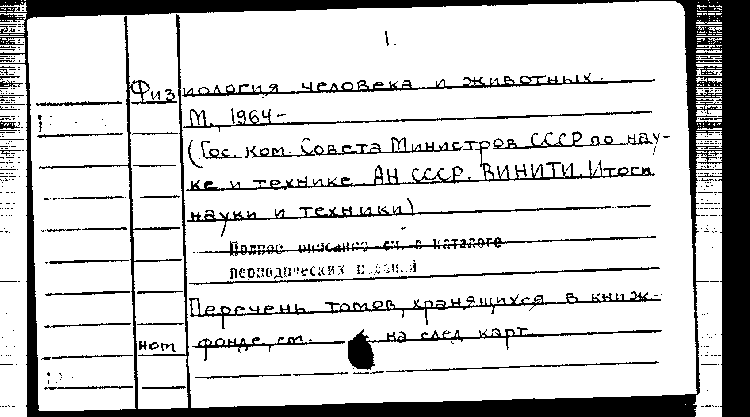 1.
Физиология человека и животных.
М., 1964-
(Гос. ком. Совета Министров СССР по нау-
ке и технике. АН СССР. ВИНИТИ. Итоги
науки и техники)
Полное описание см. в каталоге
периодических изданий
Перечень томов, хранящихся в книж-
ном фонде, см. на след карт.